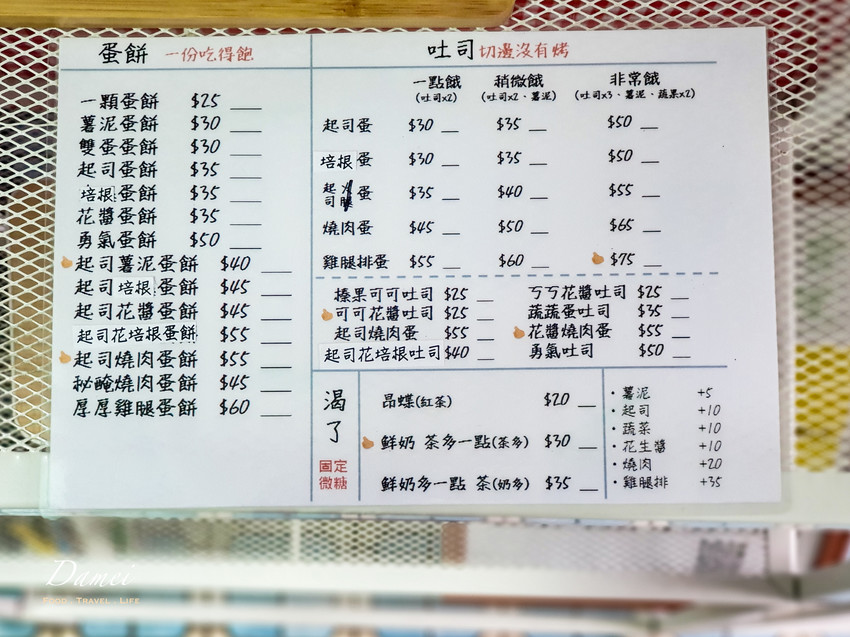 蛋餅 一份吃得飽
一顆蛋餅 $25
薯泥蛋餅 $30
雙蛋蛋餅 $30
起司蛋餅 $35
培根蛋餅 $35
花醬蛋餅 $35
勇氣蛋餅 $50
起司薯泥蛋餅 $40
起司培根蛋餅 $45
起司花醬蛋餅 $45
起司花培根蛋餅 $55
起司燒肉蛋餅 $55
秘醃燒肉蛋餅 $45
厚厚雞腿蛋餅 $60
吐司 切邊沒有烤
一點餓 稍微餓 非常餓
(吐司x2) (吐司x2、薯泥) (吐司x3、薯泥、蔬果x2)
起司蛋 $30 $35 $50
培根蛋 $30 $35 $50
起司 蛋 $35 $40 $55
燒肉蛋 $45 $50 $65
雞腿排蛋 $55 $60 $75
榛果可可吐司 $25 ㄎㄎ花醬吐司 $25
可可花醬吐司 $25 蔬蔬蛋吐司 $35
起司燒肉蛋 $55 花醬燒肉蛋 $55
起司花培根吐司 $40 勇氣吐司 $50
渴了
固定
微糖
昂蝶(紅茶) $20
鮮奶 茶多一點(茶多) $30
鮮奶多一點 茶(奶多) $35
・薯泥 +5
・起司 +10
・蔬菜 +10
・花生醬 +10
・燒肉 +20
・雞腿排 +35
Damei
FOOD . TRAVEL . LIFE